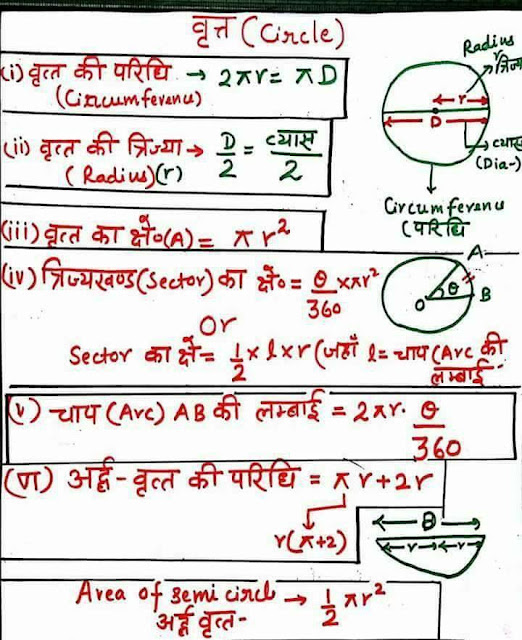 वृत्त (Circle)
(i) वृत्त की परिधि → 2πr = πD
(Circumference)
Radius
r
त्रिज्या
r
D
व्यास
(Dia-)
Circumference
(परिधि
(ii) वृत्त की त्रिज्या → D/2 = व्यास/2
(Radius)(r)
(iii) वृत्त का क्षे०(A) = πr²
(iv) त्रिज्यखण्ड(Sector) का क्षे० = θ/360 × πr²
A
O θ B
Or
Sector का क्षे = 1/2 × l × r (जहाँ l = चाप (Arc की
लम्बाई
(v) चाप (Arc) AB की लम्बाई = 2πr · θ/360
अर्द्ध-वृत्त की परिधि = πr + 2r
r(π+2)
r r
Area of Semi circle → 1/2 πr²
अर्द्ध वृत्त-